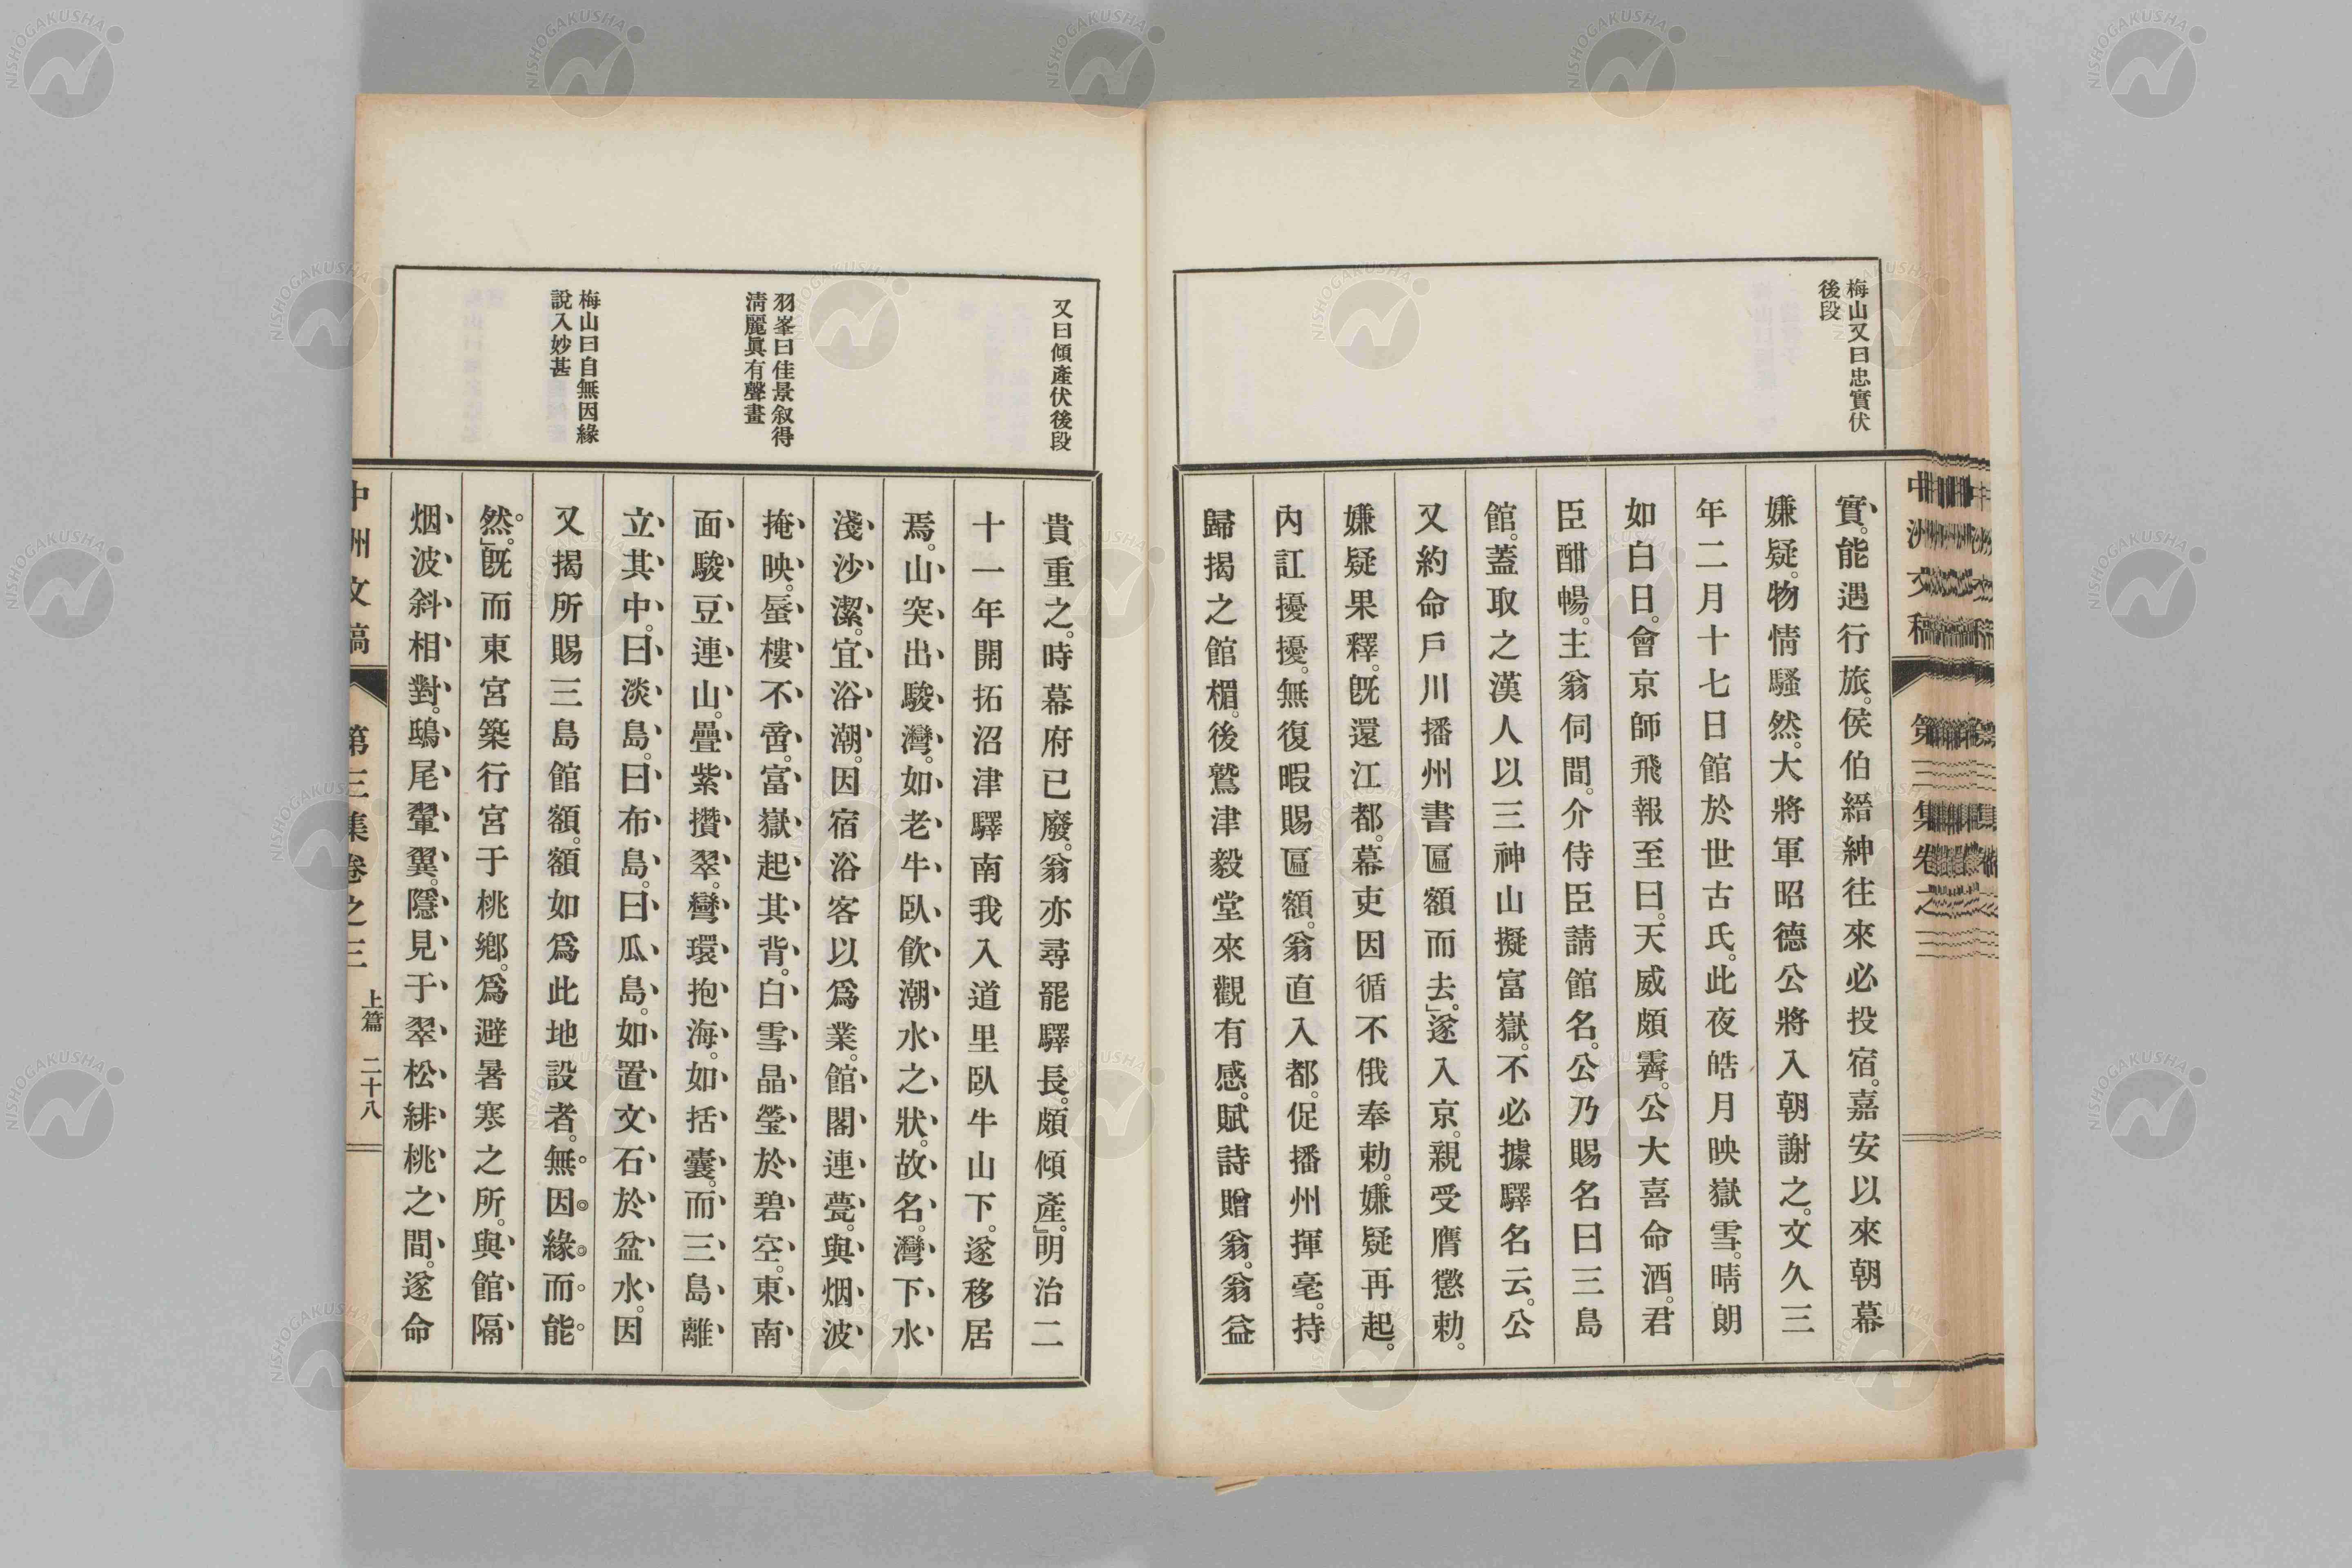 梅山又曰忠實伏
後段
實。能遇行旅。侯伯縉紳往來必投宿。嘉安以來朝幕
嫌疑。物情騷然。大將軍昭德公將入朝謝之。文久三
年二月十七日館於世古氏。此夜皓月映嶽雪。晴朗
如白日。會京師飛報至曰。天威頗霽。公大喜命酒。君
臣酣暢。主翁伺間。介侍臣請館名。公乃賜名曰三島
館。蓋取之漢人以三神山擬富嶽。不必據驛名云。公
又約命戶川播州書匾額而去。」遂入京。親受膺懲勅。
嫌疑果釋。旣還江都。幕吏因循不俄奉勅。嫌疑再起。
內訌擾擾。無復暇賜匾額。翁直入都。促播州揮毫。持
歸揭之館楣。後鷲津毅堂來觀有感。賦詩贈翁。翁益
又曰傾產伏後段
羽峯曰佳景叙得
淸麗眞有聲畫
梅山曰自無因緣
說入妙甚
貴重之。時幕府已廢。翁亦尋罷驛長。頗傾產。」明治二
十一年開拓沼津驛南我入道里臥牛山下。遂移居
焉。山突出駿灣。如老牛臥飮潮水之狀。故名。灣下水
淺沙潔。宜浴潮。因宿浴客以爲業。館閣連甍。與烟波
掩映。蜃樓不啻。富嶽起其背。白雪晶瑩於碧空。東南
面駿豆連山。疊紫攢翠。彎環抱海。如括囊。而三島離
立其中。曰淡島。曰布島。曰瓜島。如置文石於盆水。因
又揭所賜三島館額。額如爲此地設者。無因緣而能
然。」旣而東宮築行宮于桃鄕。爲避暑寒之所。與館隔
烟波斜相對。鴟尾翬翼。隱見于翠松緋桃之間。遂命
中洲文稿
第三集卷之三
上篇
二十八